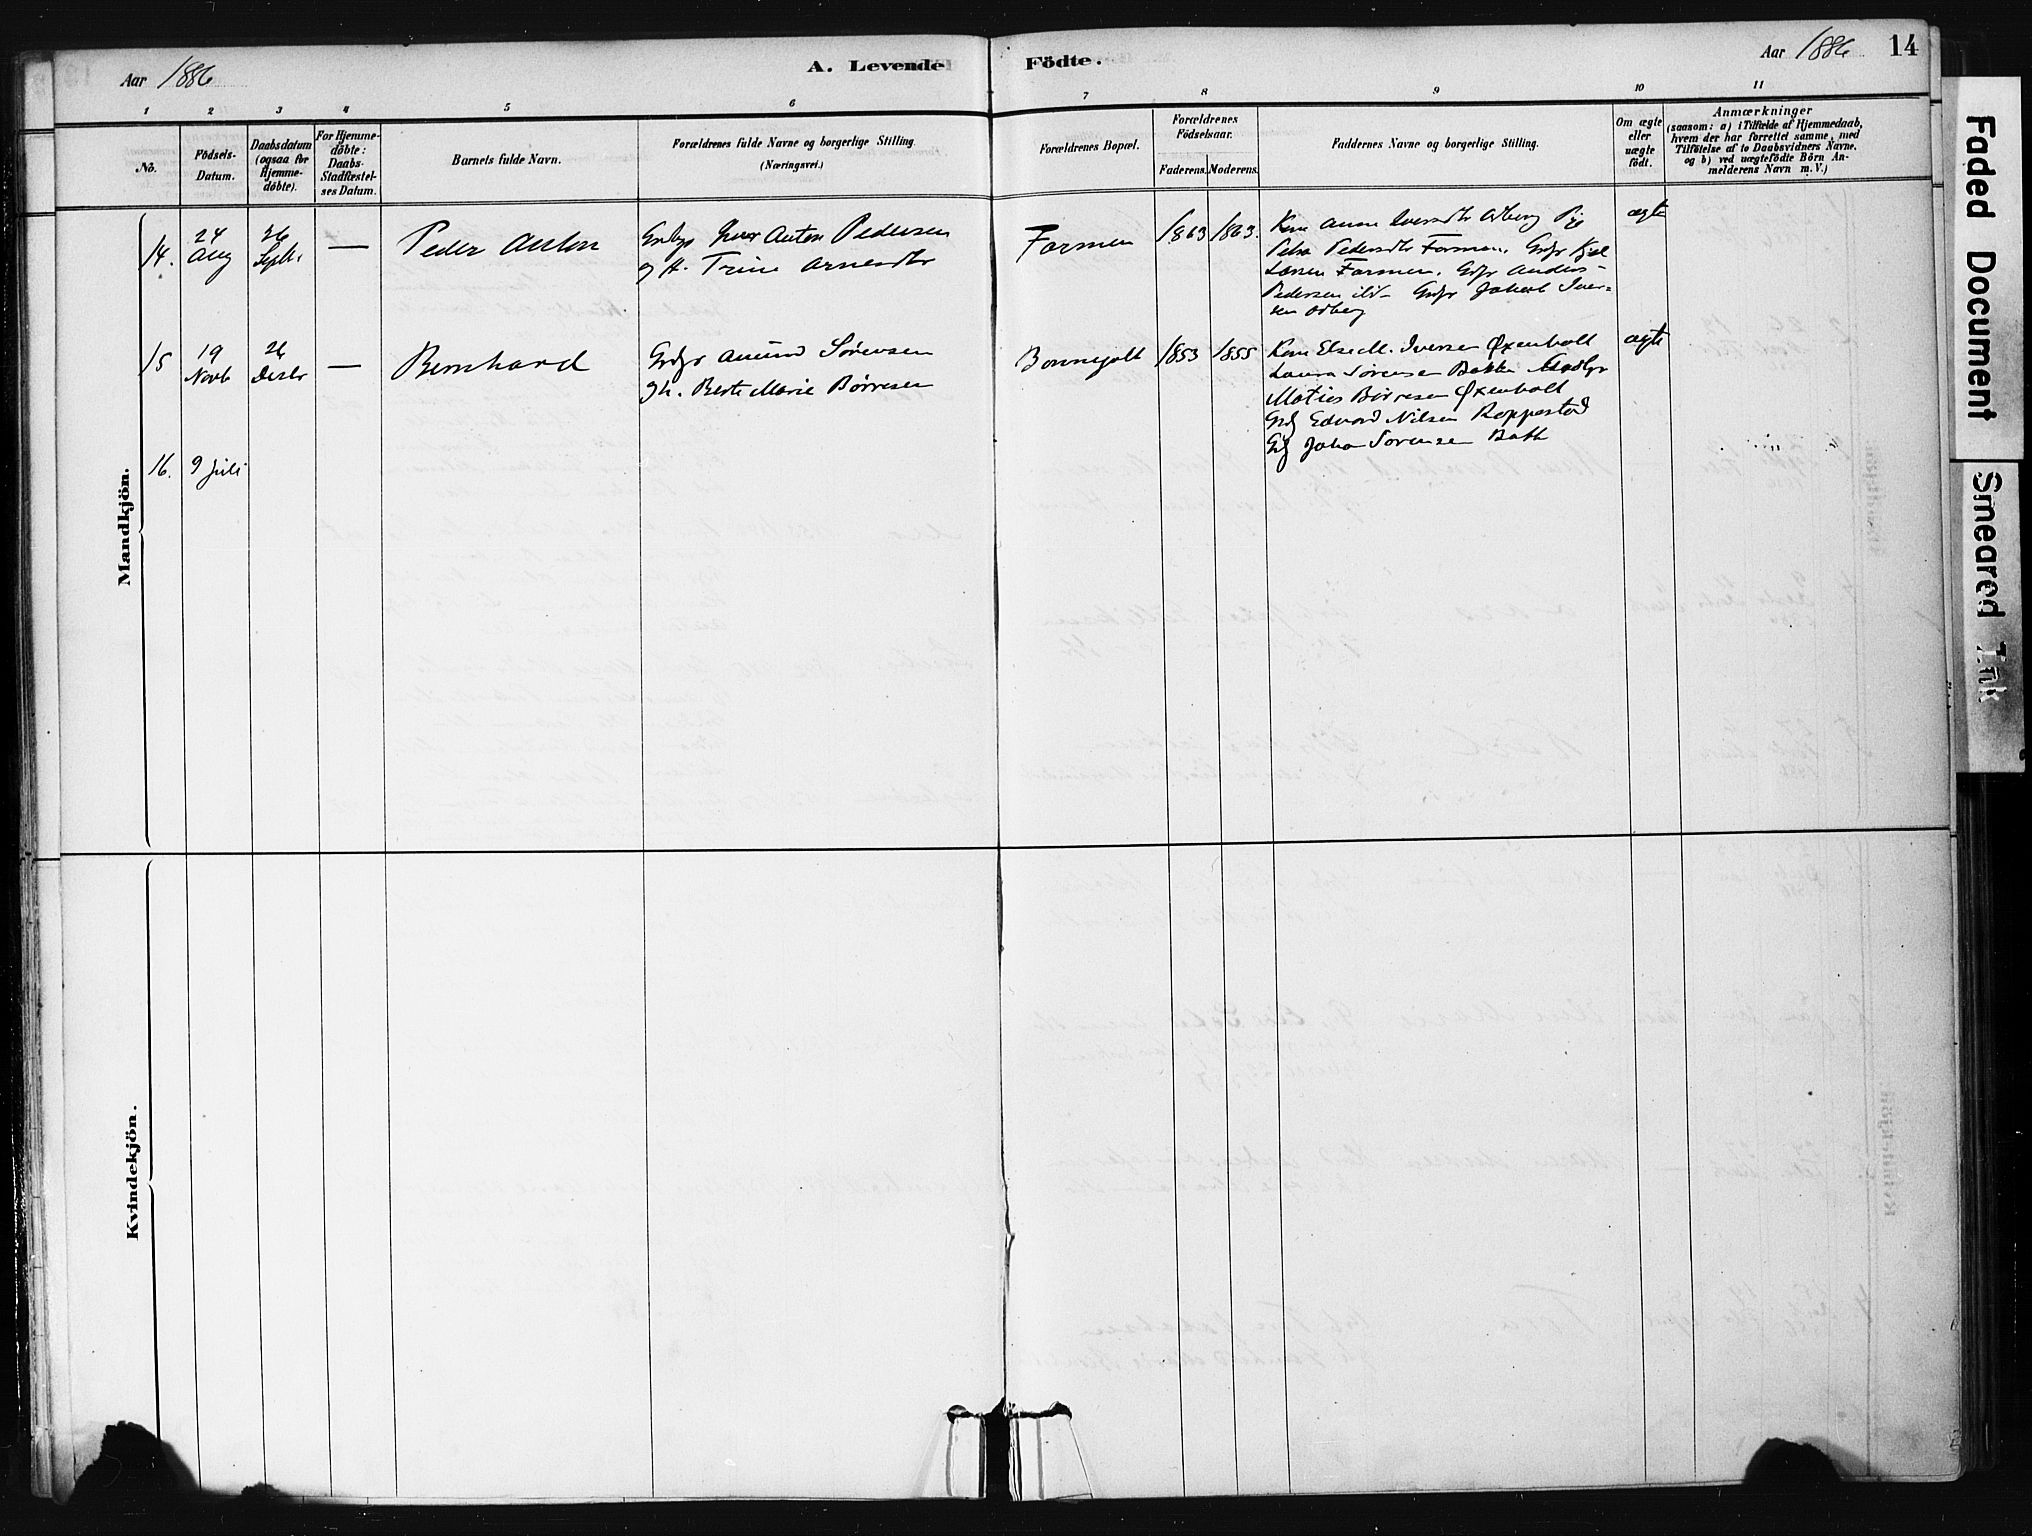 Aar 1886
A. Levende Födte.
Aar 1886
14
1 2 3 4 5 6 7 8 9 10 11
No.
Födsels-
Datum.
Daabsdatum
(ogsaa for
Hjemme-
döbte).
For Hjemme-
döbte:
Daabs-
Stadfæstel-
ses Datum.
Barnets fulde Navn.
Forældrenes fulde Navne og borgerlige Stilling.
(Næringsvei.)
Forældrenes Bopæl.
Forældrenes
Födselsaar.
Faderens.
Moderens.
Faddernes Navne og borgerlige Stilling.
Om ægte
eller
uægte
födt.
Anmærkninger
(saasom: a) i Tilfælde af Hjemmedaab,
hvem der har forrettet samme, med
Tilföielse af to Daabsvidners Navne.
og b) ved uægtefödte Börn An-
melderens Navn m. V.)
Mandkjön.
14.
24
Aug
26
Septb.
—
Peder Anton
Anton Pedersen
og H. Trine Arnesdtr
Farmen
1863
1863.
Kone Anne Iversdtr Odberg Pige
Petra Pedersdtr Farmen. Gdbr Kjel
Larsen Farmen. Gdbr Anders
Pedersen ibd. Gdbr Jakob Iver-
sen Odberg
ægte
15
19
Novb
26
Decbr
—
Bernhard
Gdbr Amund Sørensen
og H. Berte Marie Børresen
1853
1855
Kone Else M. Iversen Øxenholt
Laura Sørensen Bakke
Matias Børresen Øxenholt
Edvard Nilsen Roppestad
Johan Sørensen Bakk
ægte
16.
9 Juli
Kvindekjön.
Faded Document
Smeared Ink